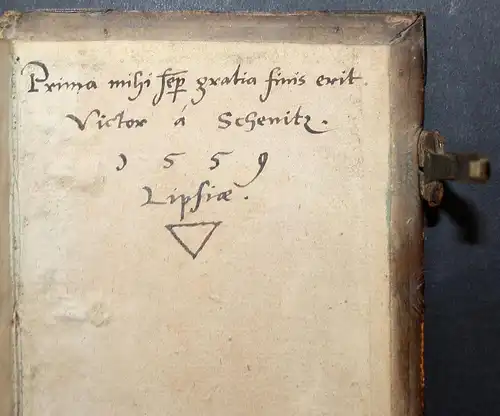 Prima mihi sep̄ gratia finis erit.
Victor á Schenitz.
1559
Lipsiæ.